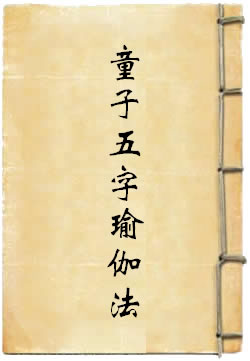 童子五字瑜伽法